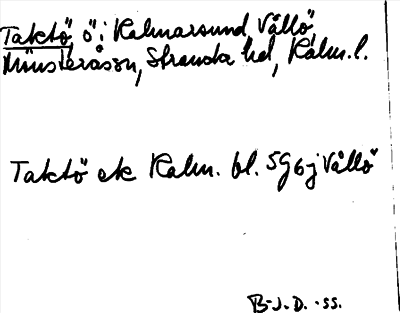 Taktö ö i Kalmarsund, Vållö,
Mönsterås sn, Stranda hd, Kalm. l.
Taktö ek Kalm. bl. 5G6j Vållö
B-J.D. -ss.